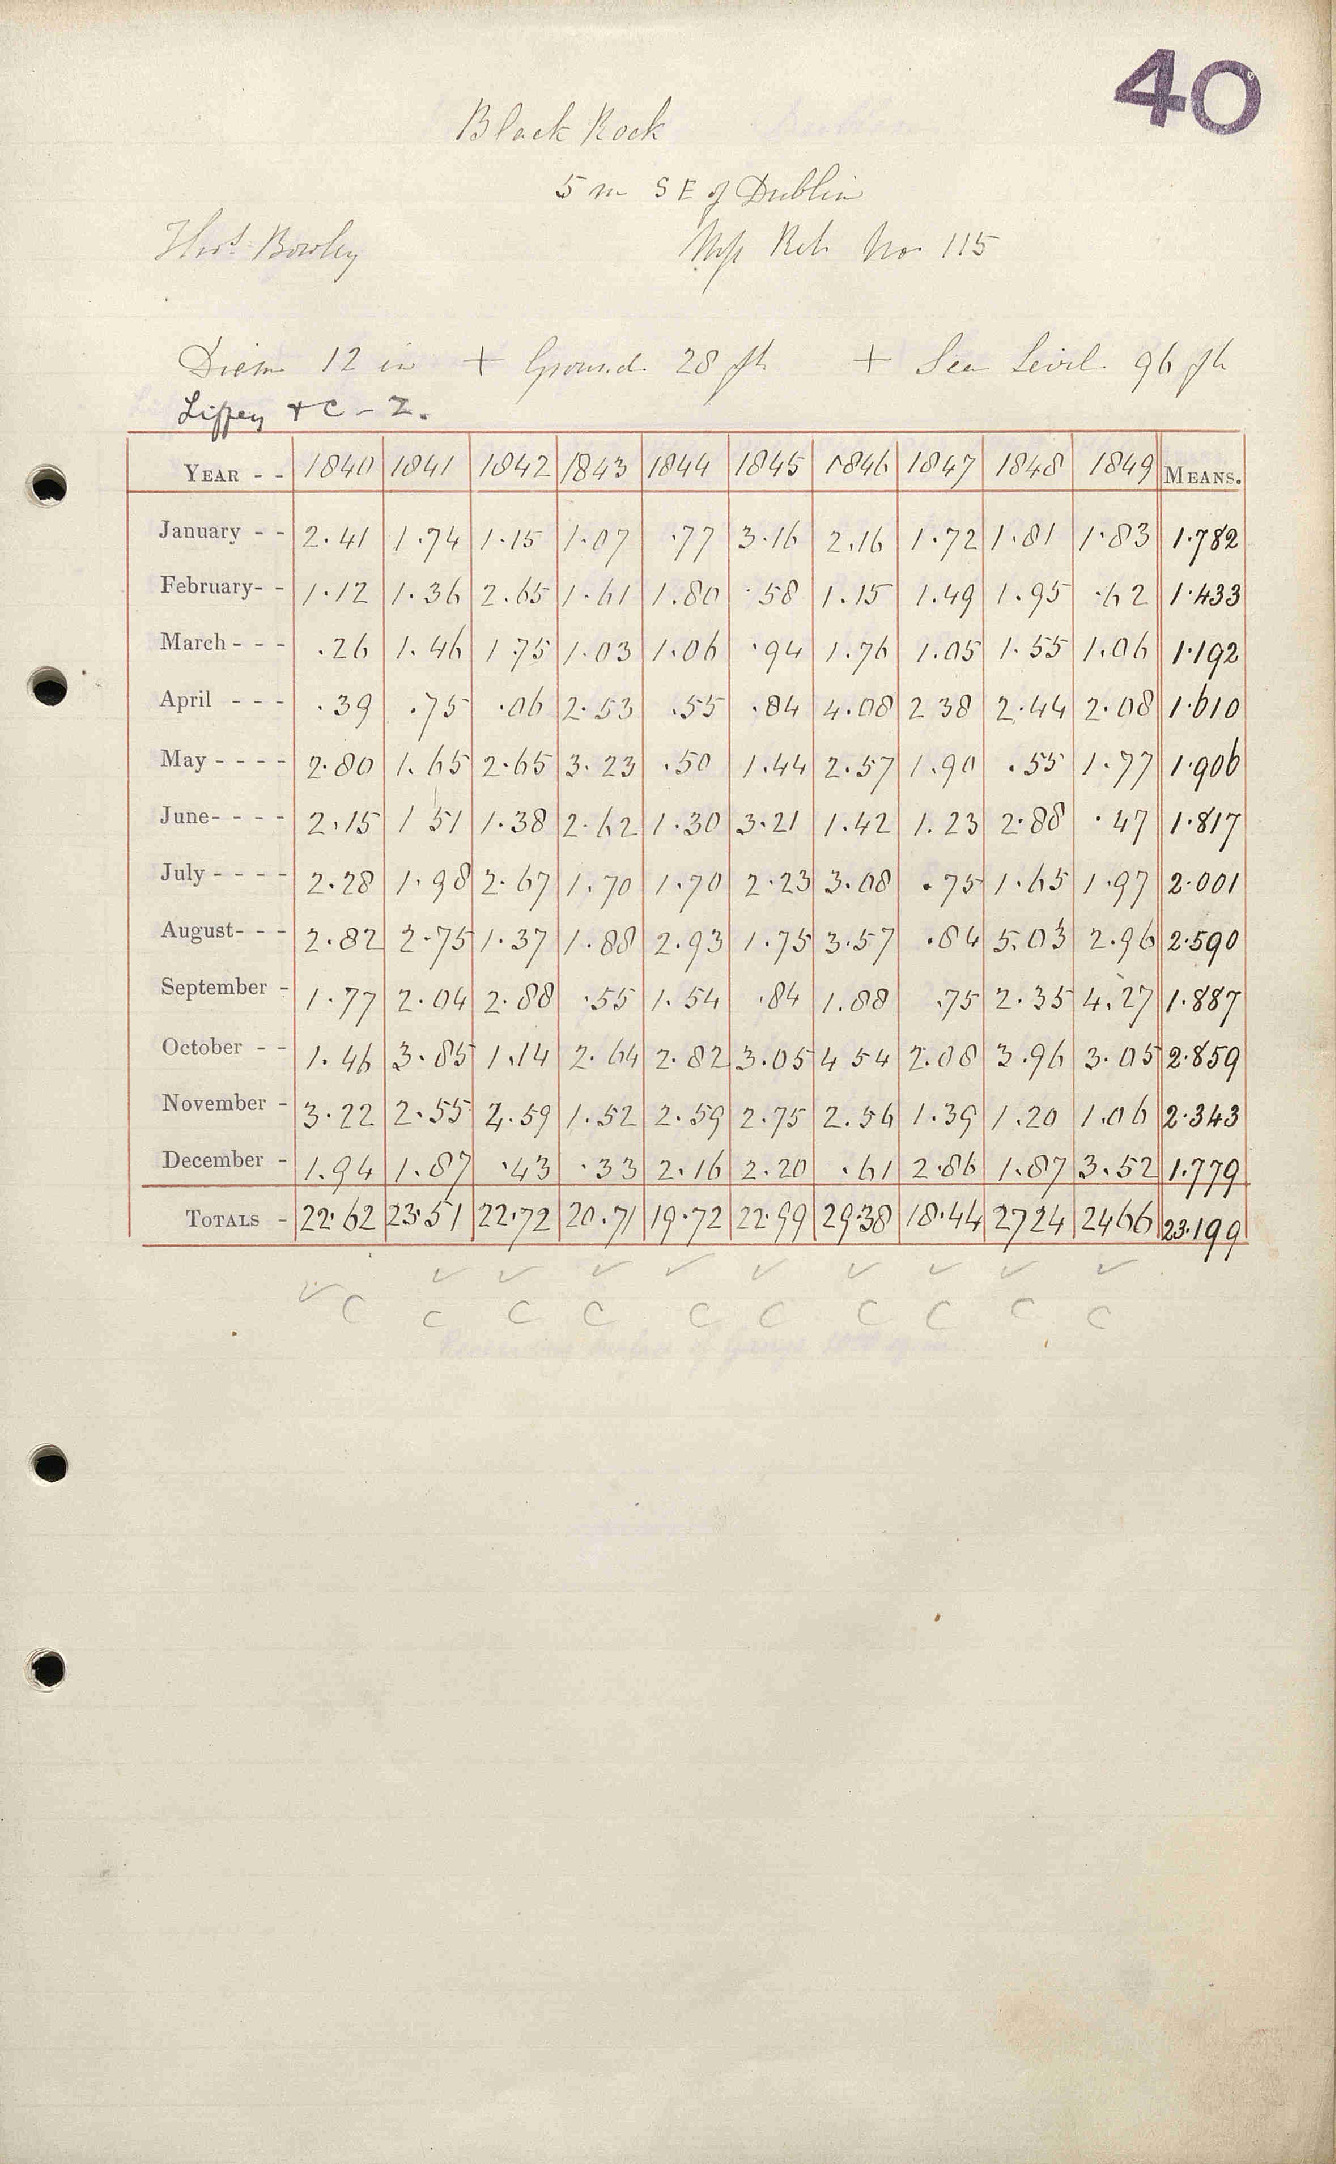 40
Black Rock
5 m S E of Dublin
Thos. Bewley Mss Ret. No. 115
Diam 12 in + Ground 28 ft + Sea Level 96 ft
Liffey & C - Z.
YEAR - - 1840 1841 1842 1843 1844 1845 1846 1847 1848 1849 MEANS.
January - - 2.41 1.74 1.15 1.07 .77 3.16 2.16 1.72 1.81 1.83 1.782
February- - 1.12 1.36 2.65 1.61 1.80 .58 1.15 1.49 1.95 .62 1.433
March - - - .26 1.46 1.75 1.03 1.06 .94 1.76 1.05 1.55 1.06 1.192
April - - - .39 .75 .06 2.53 .55 .84 4.08 2 38 2.44 2.08 1.610
May - - - - 2.80 1.65 2.65 3.23 .50 1.44 2.57 1.90 .55 1.77 1.906
June- - - - 2.15 1 51 1.38 2.62 1.30 3.21 1.42 1.23 2.88 .47 1.817
July - - - - 2.28 1.98 2.67 1.70 1.70 2.23 3.08 .75 1.65 1.97 2.001
August- - - 2.82 2.75 1.37 1.88 2.93 1.75 3.57 .84 5.03 2.96 2.590
September - 1.77 2.04 2.88 .55 1.54 .84 1.88 .75 2.35 4.27 1.887
October - - 1.46 3.85 1.14 2.64 2.82 3.05 4 54 2.08 3.96 3.05 2.859
November - 3.22 2.55 4.59 1.52 2.59 2.75 2.56 1.39 1.20 1.06 2.343
December - 1.94 1.87 .43 .33 2.16 2.20 .61 2.86 1.87 3.52 1.779
TOTALS - 22.62 23.51 22.72 20.71 19.72 22.99 29.38 18.44 27 24 24 66 23.199
C C C C C C C C C C